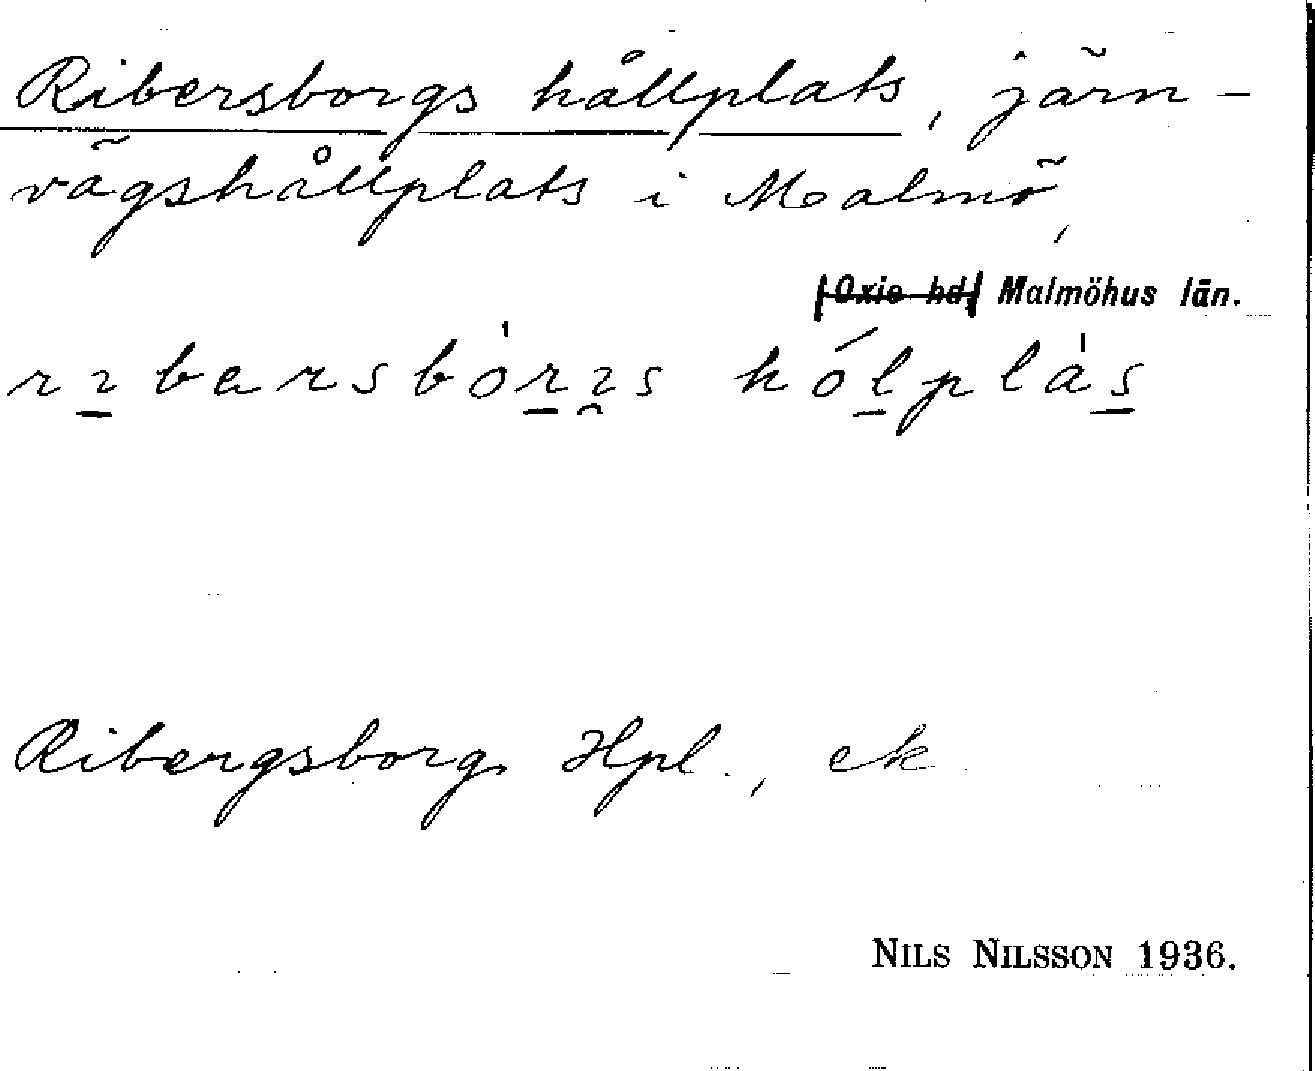 Ribersborgs hållplats, järn-
vägshållplats i Malmö,
Oxie hd, Malmöhus län.
rıbarsbórıs hólplás
Ribergsborgs Hpl., ek
NILS NILSSON 1936.